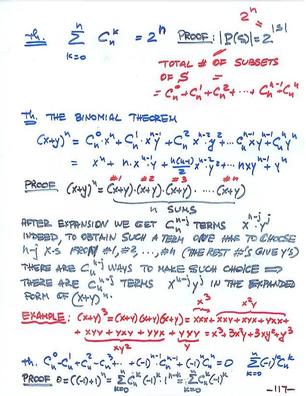 2^n =
Th. Σ_{k=0}^{n} C_n^k = 2^n PROOF: |P(S)| = 2^{|S|}
TOTAL # OF SUBSETS
OF S =
= C_n^0 + C_n^1 + C_n^2 + ... + C_n^{n-1} + C_n^n
Th. THE BINOMIAL THEOREM
(x+y)^n = C_n^0 · x^n + C_n^1 x^{n-1} y + C_n^2 x^{n-2} y^2 + ... C_n^{n-1} x y^{n-1} + C_n^n y^n
= x^n + n·x^{n-1}·y + n(n-1)/2 x^{n-2} y^2 + ... n x y^{n-1} + y^n
#1 #2 #3 #n
PROOF (x+y)^n = (x+y)·(x+y)·(x+y)· ... ·(x+y)
n SUMS
AFTER EXPANSION WE GET C_n^{n-j} TERMS x^{n-j} · y^j
INDEED, TO OBTAIN SUCH A TERM ONE HAS TO CHOOSE
n-j X-S FROM #1, #2, ..., #n (THE REST #'S GIVE Y'S)
THERE ARE C_n^{n-j} WAYS TO MAKE SUCH CHOICE ⇒
THERE ARE C_n^{n-j} TERMS x^{n-j} y^j IN THE EXPANDED
FORM OF (x+y)^n.
x^3 x^2y
EXAMPLE: (x+y)^3 = (x+y)(x+y)(x+y) = xxx + xxy + xyx + yxx +
+ xyy + yxy + yyx + yyy = x^3 + 3x^2y + 3xy^2 + y^3
xy^2 y^3
Th. C_n^0 - C_n^1 + C_n^2 - C_n^3 + ... + (-1)^{n-1} C_n^{n-1} + (-1)^n C_n^n = 0 Σ_{k=0}^{n} (-1)^k C_n^k
PROOF 0 = ((-1)+1)^n = Σ_{k=0}^{n} C_n^k (-1)^k · 1^{n-k} = Σ_{k=0}^{n} (-1)^k C_n^k
-117-